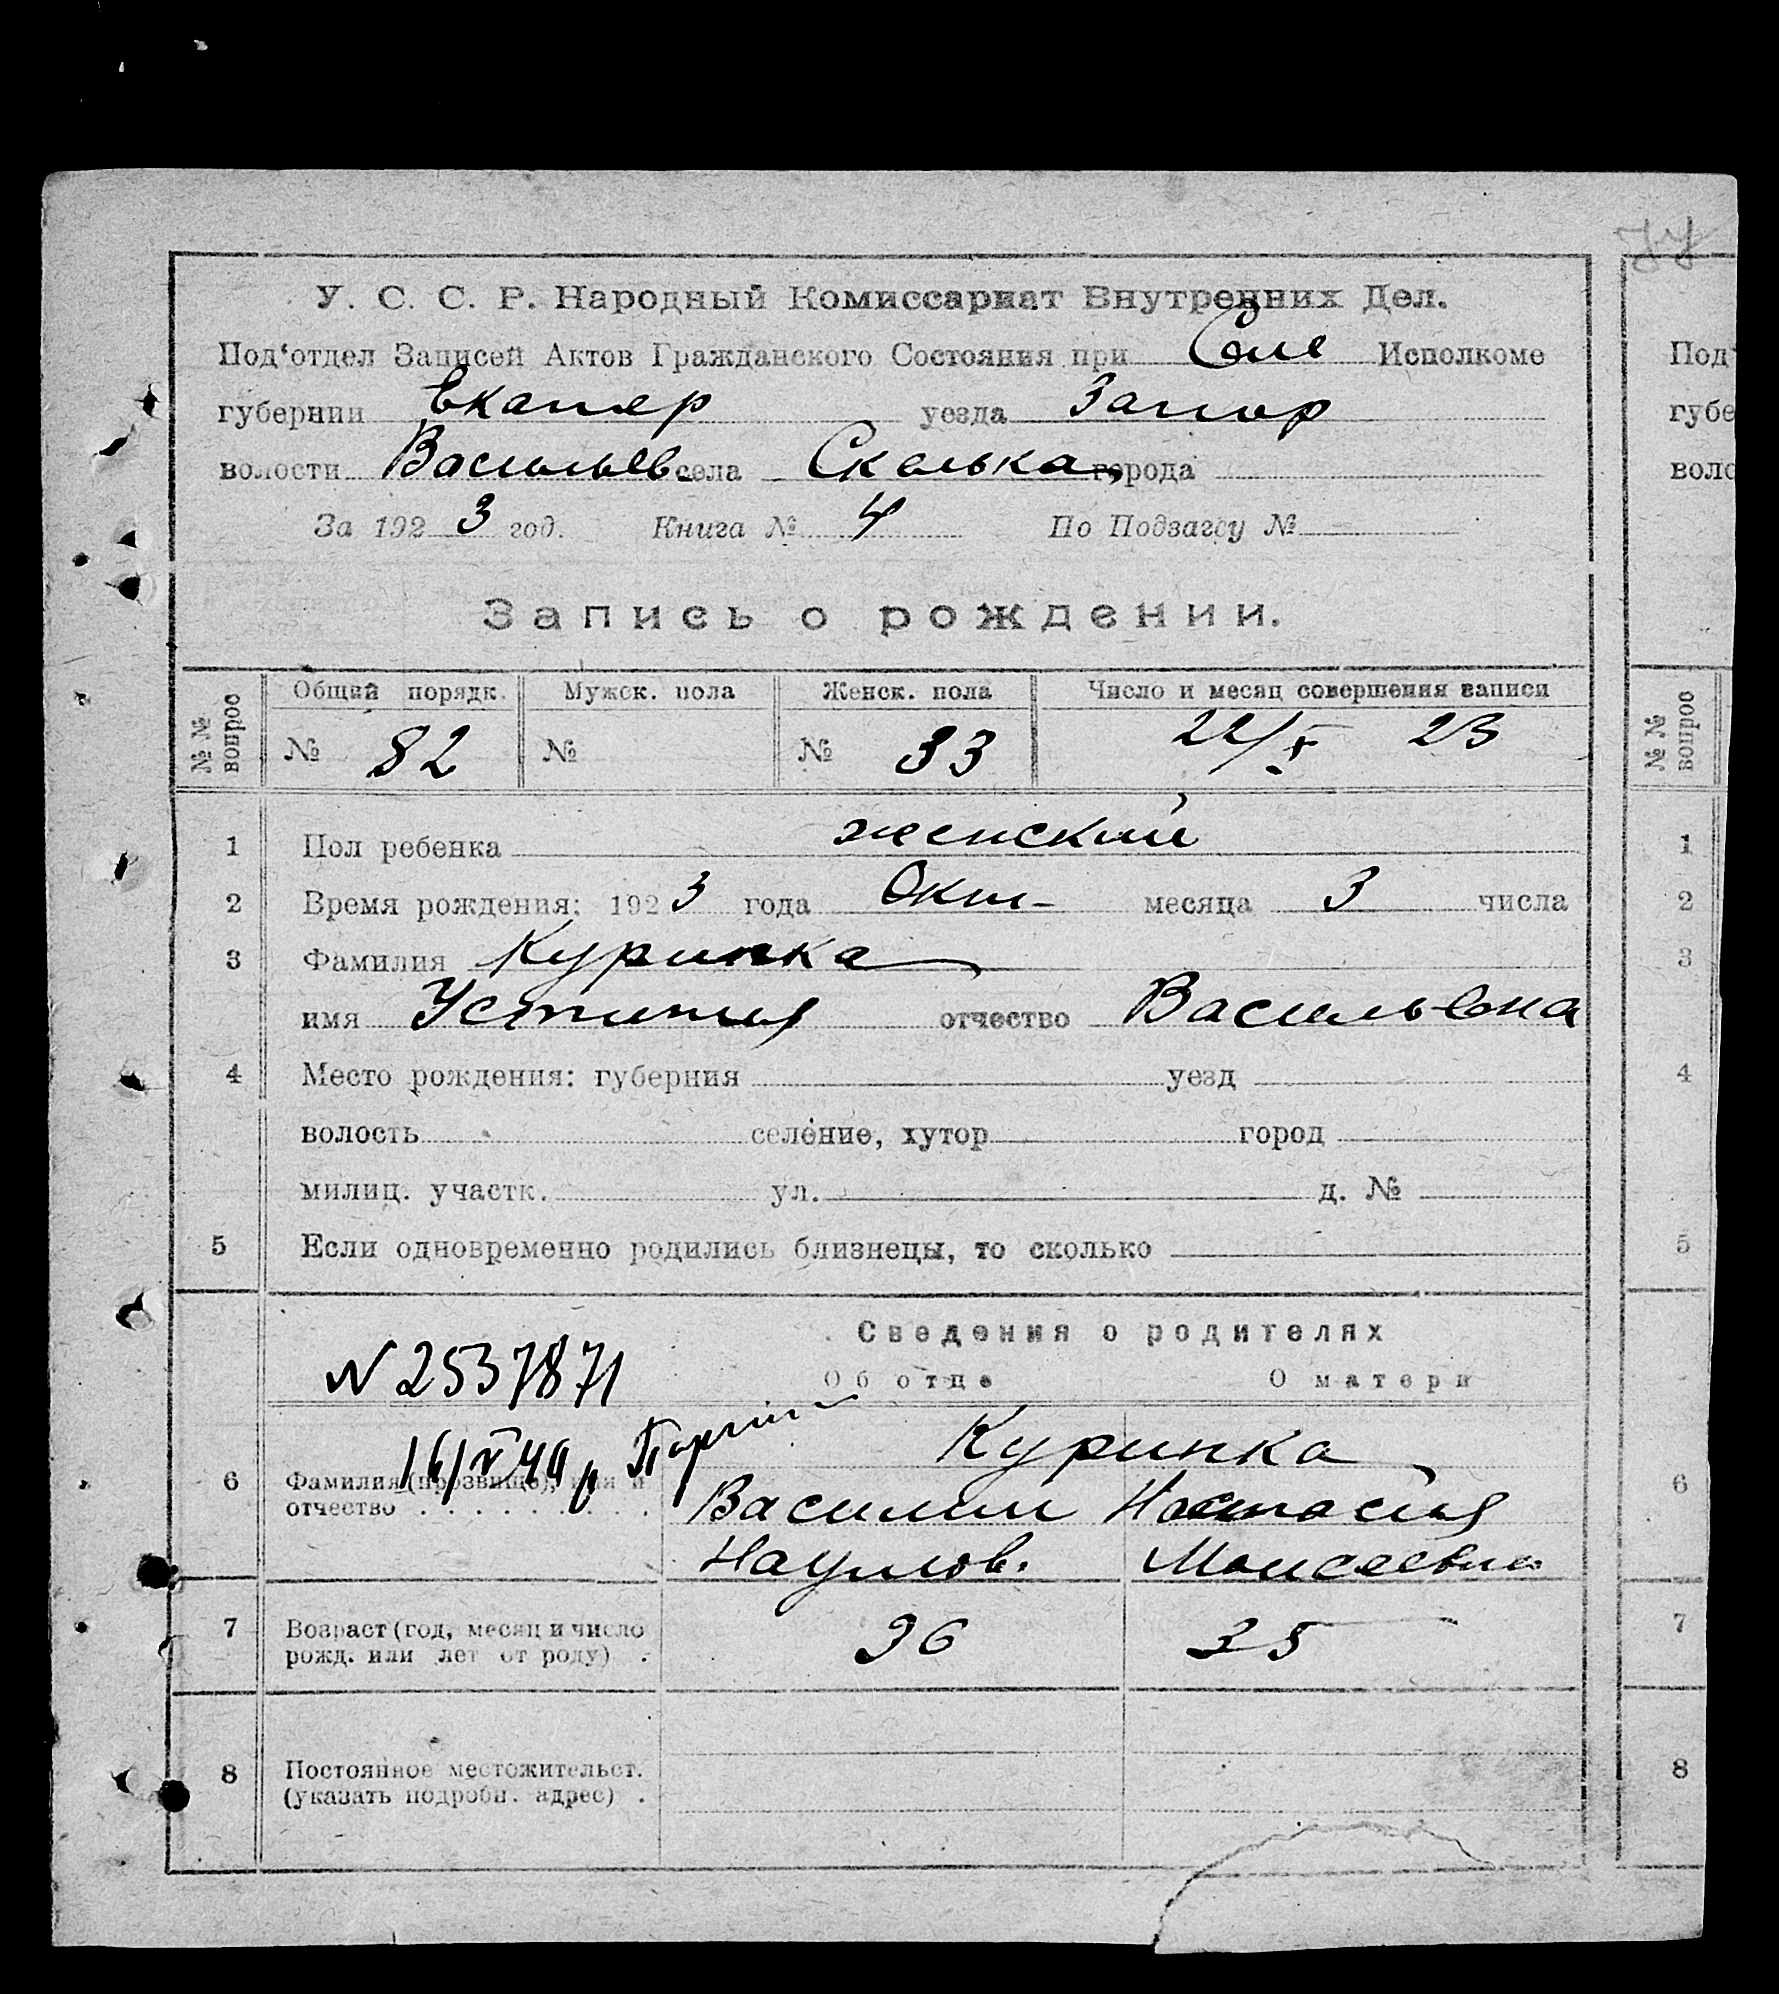 У. С. С. Р. Народный Комиссариат Внутренних Дел.
Под‘отдел Записей Актов Гражданского Состояния при Исполкоме
губернии Екатер уезда Запор
волости Васильев села Скелька, города
За 1923 год. Книга № 4 По Подзагсу №
Запись о рождении.
№ № вопрос Общий порядк. Мужск. пола Женск. пола Число и месяц совершения записи
№ 82 № № 33 22/X 23
1 Пол ребенка женский
2 Время рождения: 1923 года Окт- месяца 3 числа
3 Фамилия Куринка
имя Устиния отчество Васильевна
4 Место рождения: губерния уезд
волость селение, хутор город
милиц. участк. ул. д. №
5 Если одновременно родились близнецы, то сколько
Сведения о родителях
N 2537871
Об отце О матери
Куринка
6 Фамилия (прозвище), имя и Василий Настасия
отчество Наумов. Моисеевна
7 Возраст (год, месяц и число 36 35
рожд. или лет от роду)
8 Постоянное местожительст.
(указать подробн. адрес)
Под‘
губе
воло
№ № вопрос
1
2
3
4
5
6
7
8